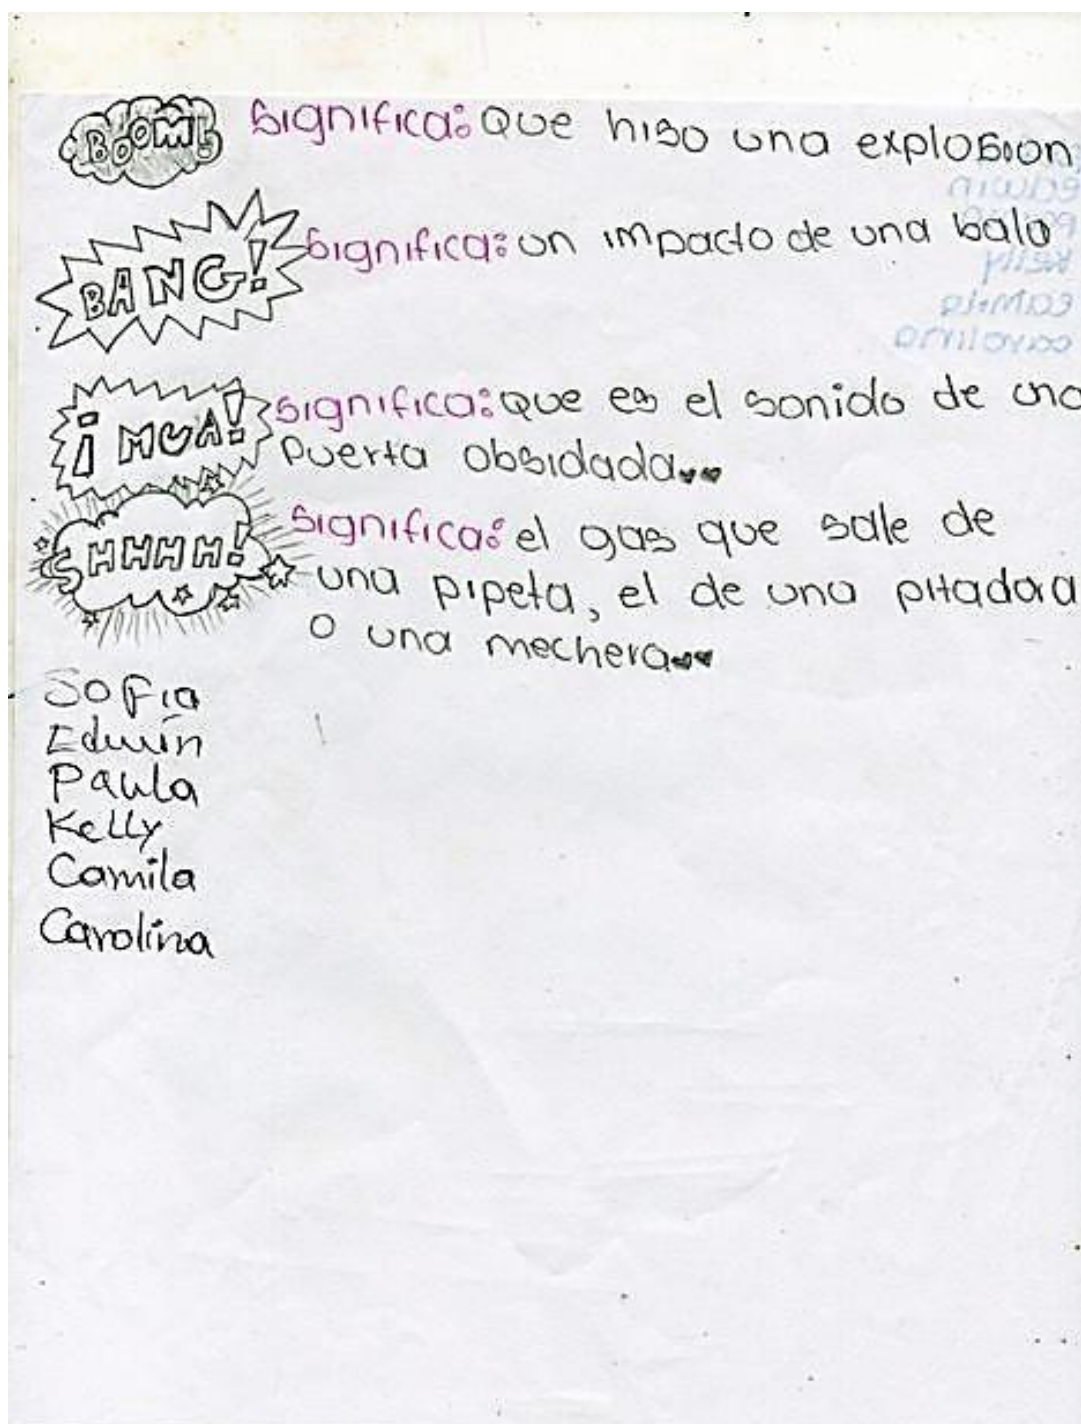 BOOM! Significa: Que hiso una explosion
BANG! Significa: un impacto de una bala
¡MUA! Significa: que es el sonido de una
puerta obsidada
SHHHH! Significa: el gas que sale de
una pipeta, el de una pitadora
o una mechera
Sofia
Edwin
Paula
Kelly
Camila
Carolina